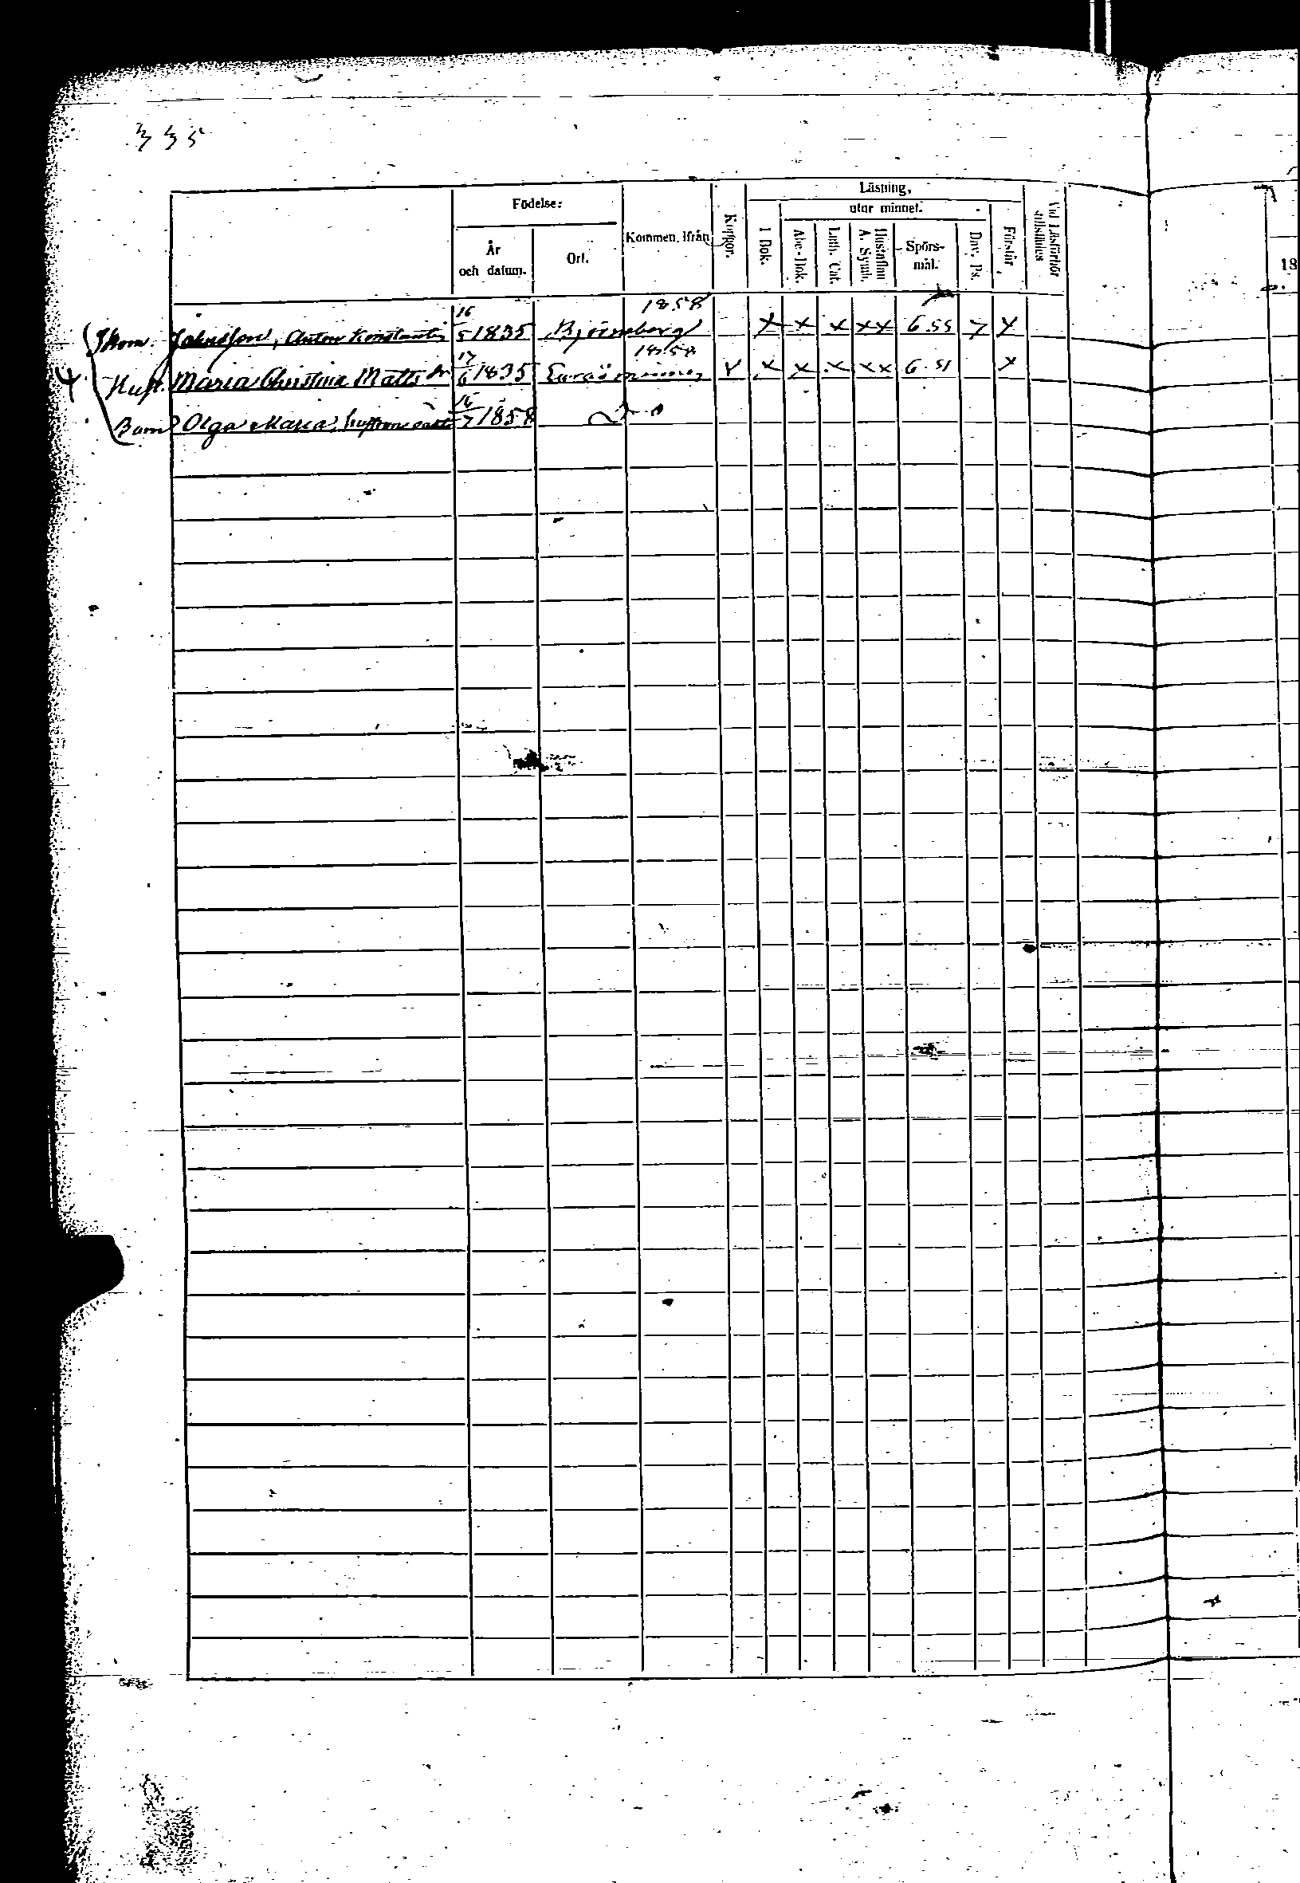 335
Läsning,
Födelse:
utur minnet.
År och datum.
Ort.
Kommen ifrån
Koppor.
I Bok.
Abc-Bok.
Luth. Cat.
Hustaflan A. Symb.
Spörs-mål.
Dav. Ps.
Förstår
Vid Läsförhör tillstädes
18
1858
Skom. Johnsson, Anton Konstantin 16/5 1835 Björneborg x x x x x 6.55 7 x
1858
4 Hust. Maria Christina Matts dr 17/6 1835 x x x x x x 6.51 x
Barn Olga Maria, hustruns 16/7 1858